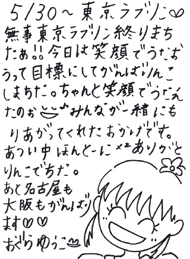 5/30〜東京ラブリンこ♡
無事東京ラブリン終りまち
たぁ!!今日は笑顔でうたお
うって目標にしてがんばりんこ
しまちた。ちゃんと笑顔でうたえ
たのぉ みんなが一緒にも
りあがてくれたおかげです。
あつい中ほんとーにありがと
りんこでちた。
あと名古屋も
大阪もがんばり
ます♡♡
おぐらゆうこ